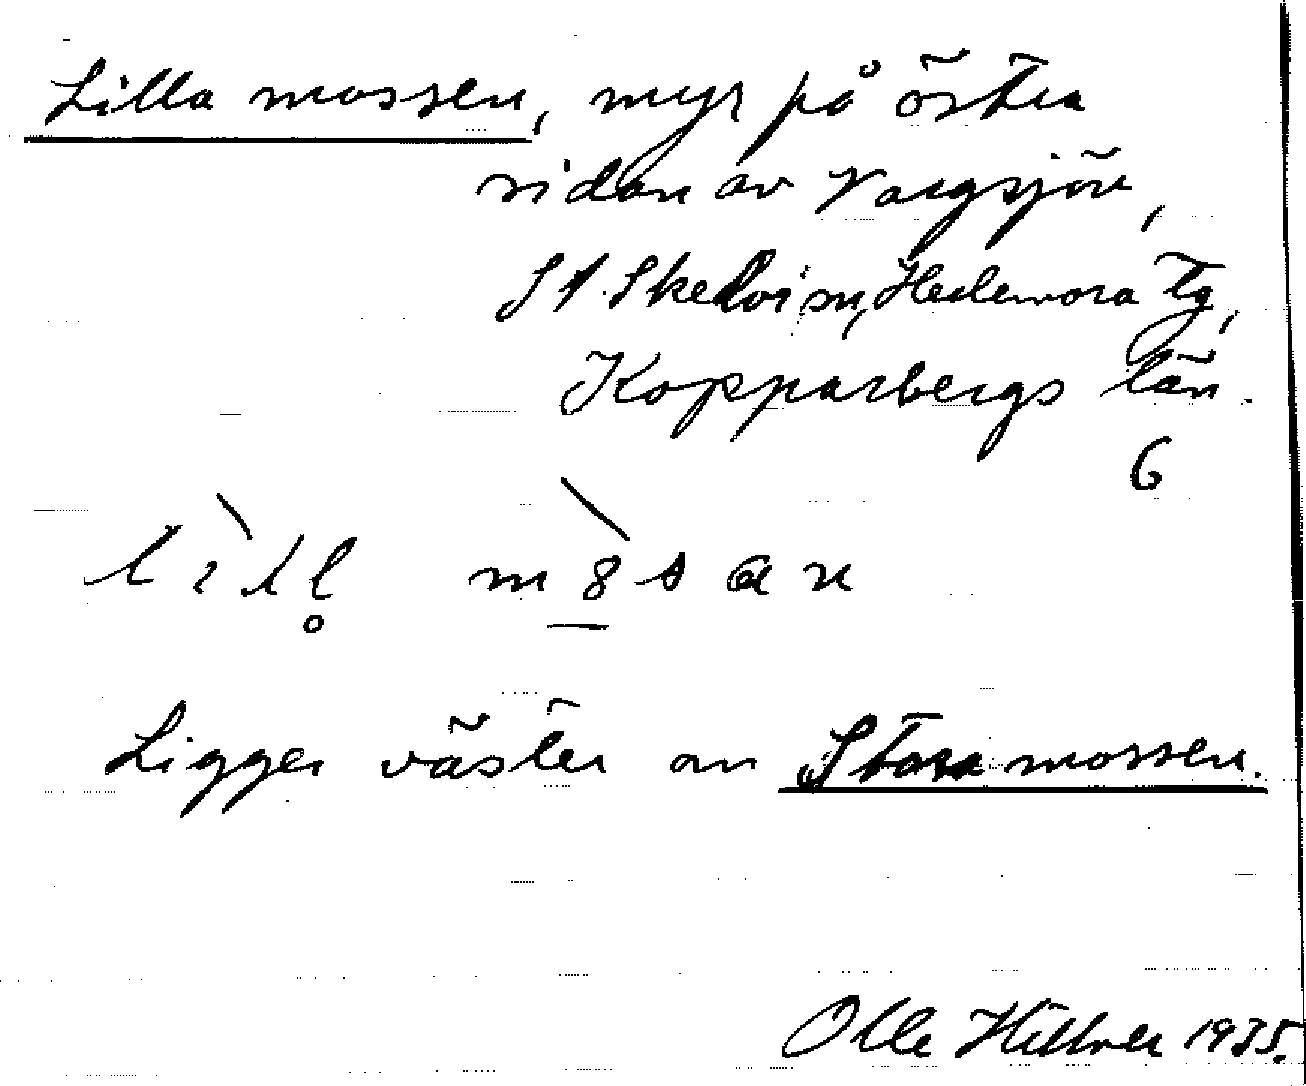 Lilla mossen, myr på östra
sidan av Vargsjön,
St. Skedvi sn, Hedemora tg,
Kopparbergs län.
6
Ligger väster om Stora mossen.
Olle 1935.